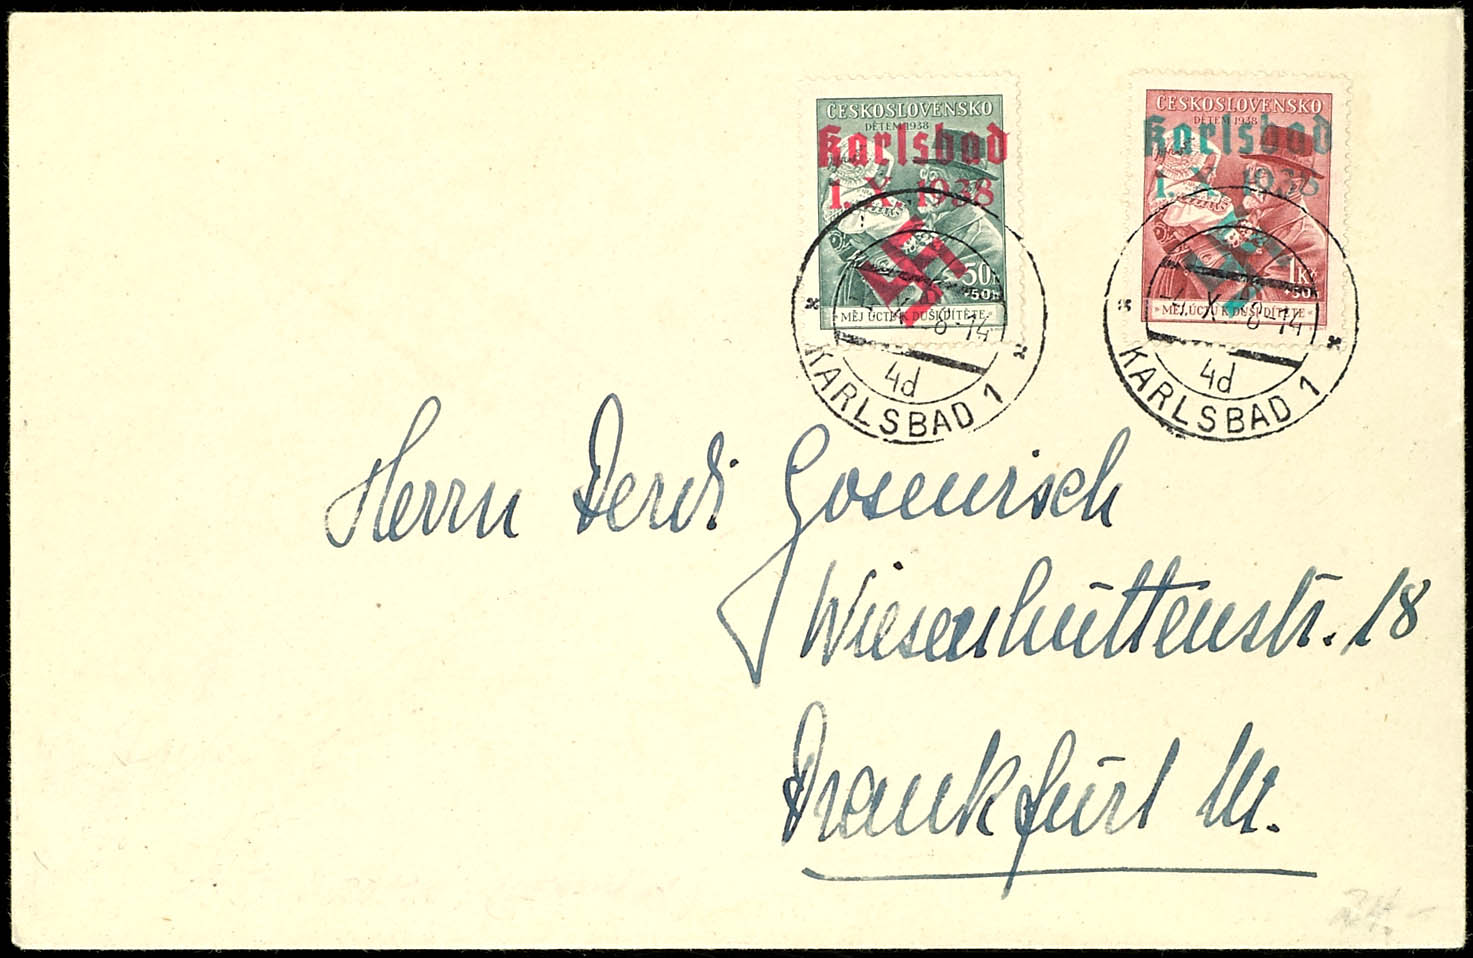 ČESKOSLOVENSKO
DĚTEM 1938
Karlsbad
1. X. 1938
50h
+50h
MĚJ ÚCTU K DUŠI DÍTĚTE
4d
KARLSBAD 1
ČESKOSLOVENSKO
DĚTEM 1938
Karlsbad
1. X. 1938
1Kč
+50h
MĚJ ÚCTU K DUŠI DÍTĚTE
4d
KARLSBAD 1
Herrn Ferdi
Wiesenhüttenstr. 18
Frankfurt M.